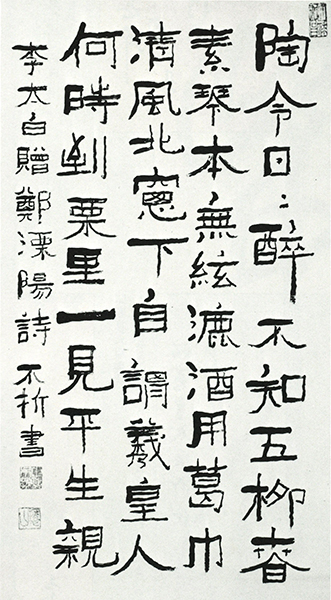 陶令日〻醉不知五柳春
素琴本無絃漉酒用葛巾
清風北窓下自謂羲皇人
何時到栗里一見平生親
李太白贈鄭溧陽詩 不折書